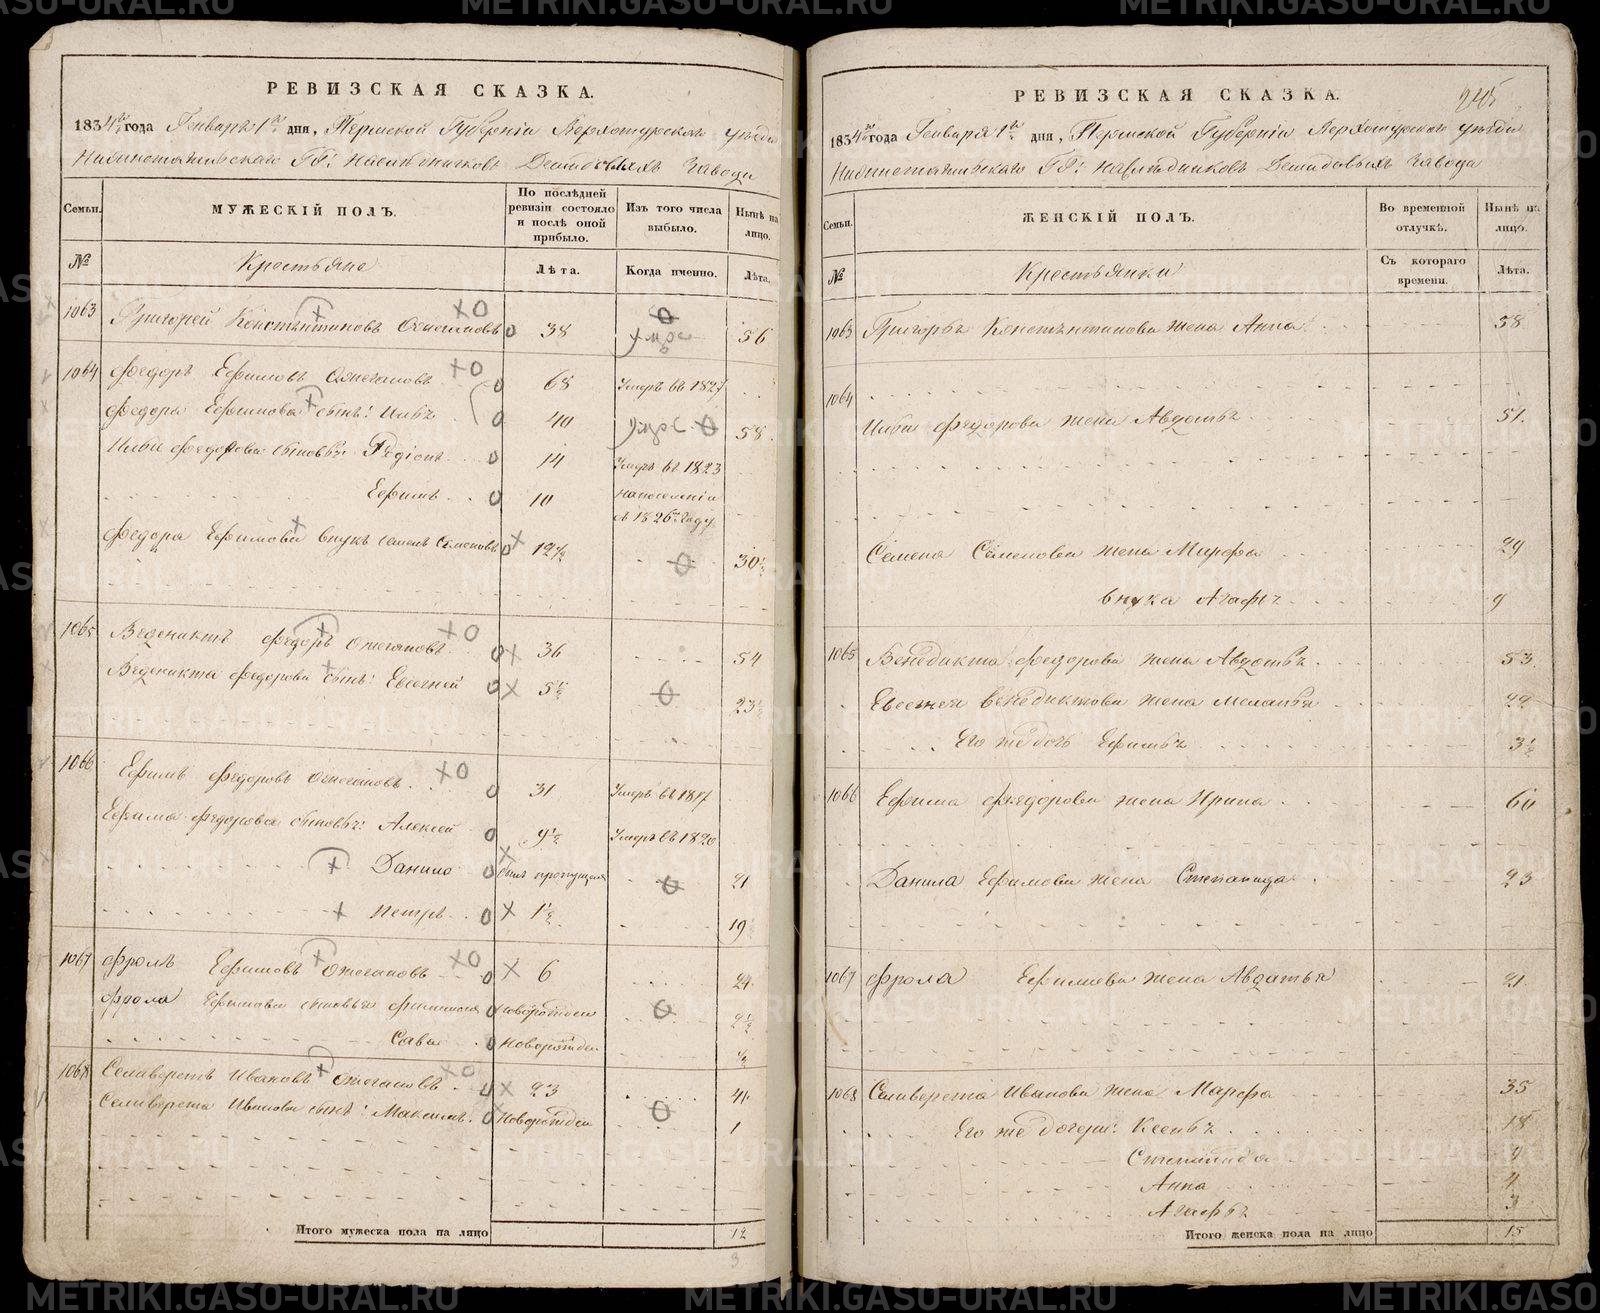 РЕВИЗСКАЯ СКАЗКА.
1834го года Генваря 1го дня, Пермской Губерніи Верхотурского уѣзда
Нижнетагильскаго ГГ: Наслѣдниковъ Демидовыхъ Завода
Семьи. МУЖЕСКІЙ ПОЛЪ. По послѣдней ревизіи состояло и послѣ оной прибыло. Изъ того числа выбыло. Нынѣ на лицо.
№ Крестьяне Лѣта. Когда именно. Лѣта.
1063 Григорей Констентиновъ Ожегановъ 38 56
1064 Федоръ Ефимовъ Ожегановъ 68 Умеръ въ 1827
Федора Ефимова сынъ: 40 58
Федорова сыновья: 14 Умеръ въ 1823
Ефимъ 10 на поселеніи
въ 1826м году
Федора Ефимова внукъ Семенъ Семеновъ 12½ 30½
1065 Веденихтъ Федоръ Ожегановъ 36 54
Веденихта Федорова сынъ: Евсегней 5½ 23½
1066 Ефимъ Федоровъ Ожегановъ 31 Умеръ въ 1817
Ефима Федорова сыновья: Алексей 9½ Умеръ въ 1820
Данило былъ пропущенъ 21
Петръ 1½ 19
1067 Фролъ Ефимовъ Ожегановъ 6 24
Фрола Ефимова сыновья новорожден 2½
Сава новорожден ½
1068 Селиверстъ Ивановъ Ожегановъ 23 41
Селиверста Иванова сынъ: Максимъ новорожден 1
Итого мужеска пола на лицо 12
3
245
РЕВИЗСКАЯ СКАЗКА.
1834го года Генваря 1го дня, Пермской Губерніи Верхотурского уѣзда
Нижнетагильскаго ГГ: Наслѣдниковъ Демидовыхъ Завода
Семьи. ЖЕНСКІЙ ПОЛЪ. Во временной отлучкѣ. Нынѣ на лицо.
№ Крестьянки Съ котораго времени. Лѣта.
1063 Григорья Констентинова жена Анна 58
1064
Федорова жена Авдотья 51
Семена Семенова жена Марфа 29
внука Агафья 9
1065 Бенедикта Федорова жена Авдотья 53
Евсегнея Венедиктова жена Меланья 22
Его же дочь Ефимья 3½
1066 Ефима Федорова жена Ирина 60
Данила Ефимова жена Степанида 23
1067 Фрола Ефимова жена Авдотья 21
1068 Селиверста Иванова жена Марфа 35
Его же дочери: Ксенья 18
Степанида 9
Анна 4
Агафья 3
Итого женска пола на лицо 15
METRIKI.GASO-URAL.RU